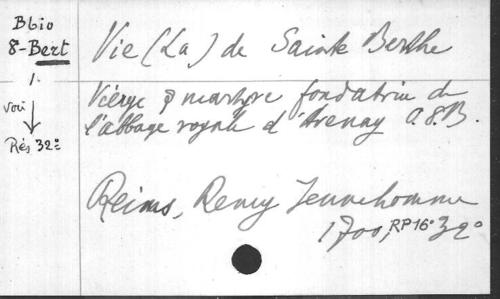 Bbio
8-Bert
1.
voir
Rés 32º
Vie (La) de Sainte Berthe
Vierge & martyre fondatrice de
l'abbaye royale d'Avenay O.S.B.
Reims, Remy Jeunehomme
1700, RP 16º 32º